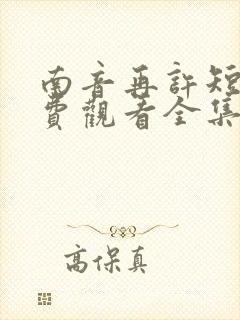 南音再許短
費觀看全集
高保真